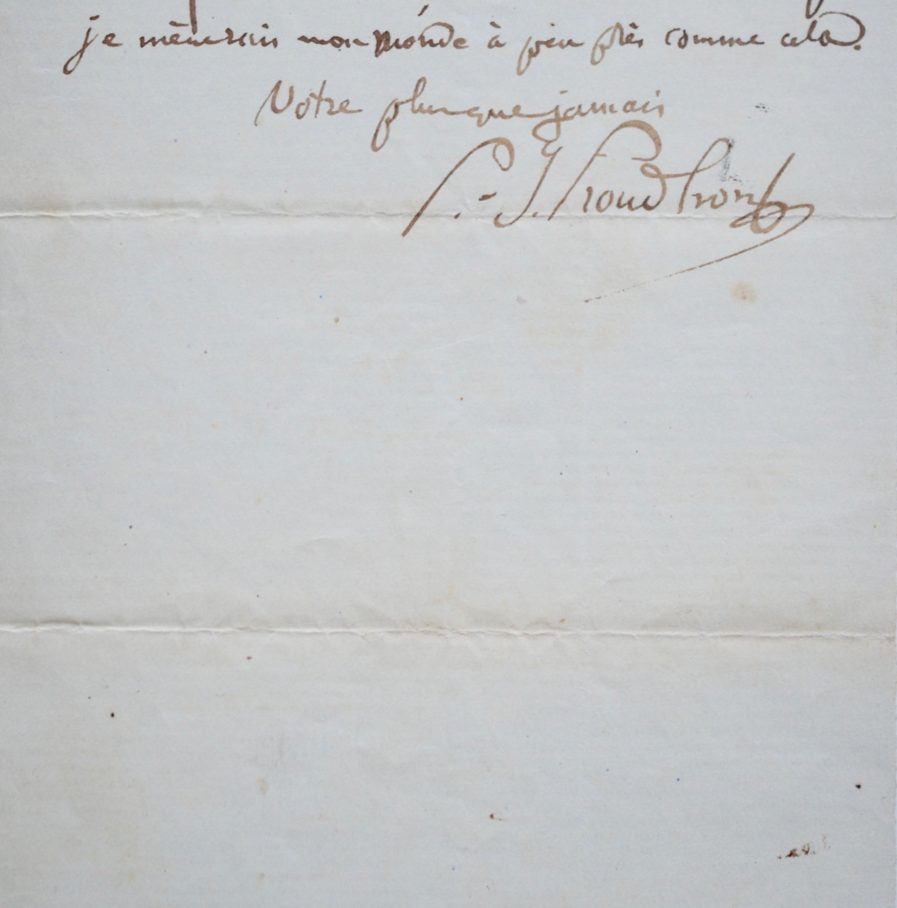 je mènerais mon monde à peu près comme cela.
Votre plus que jamais
P.-J. Proudhon